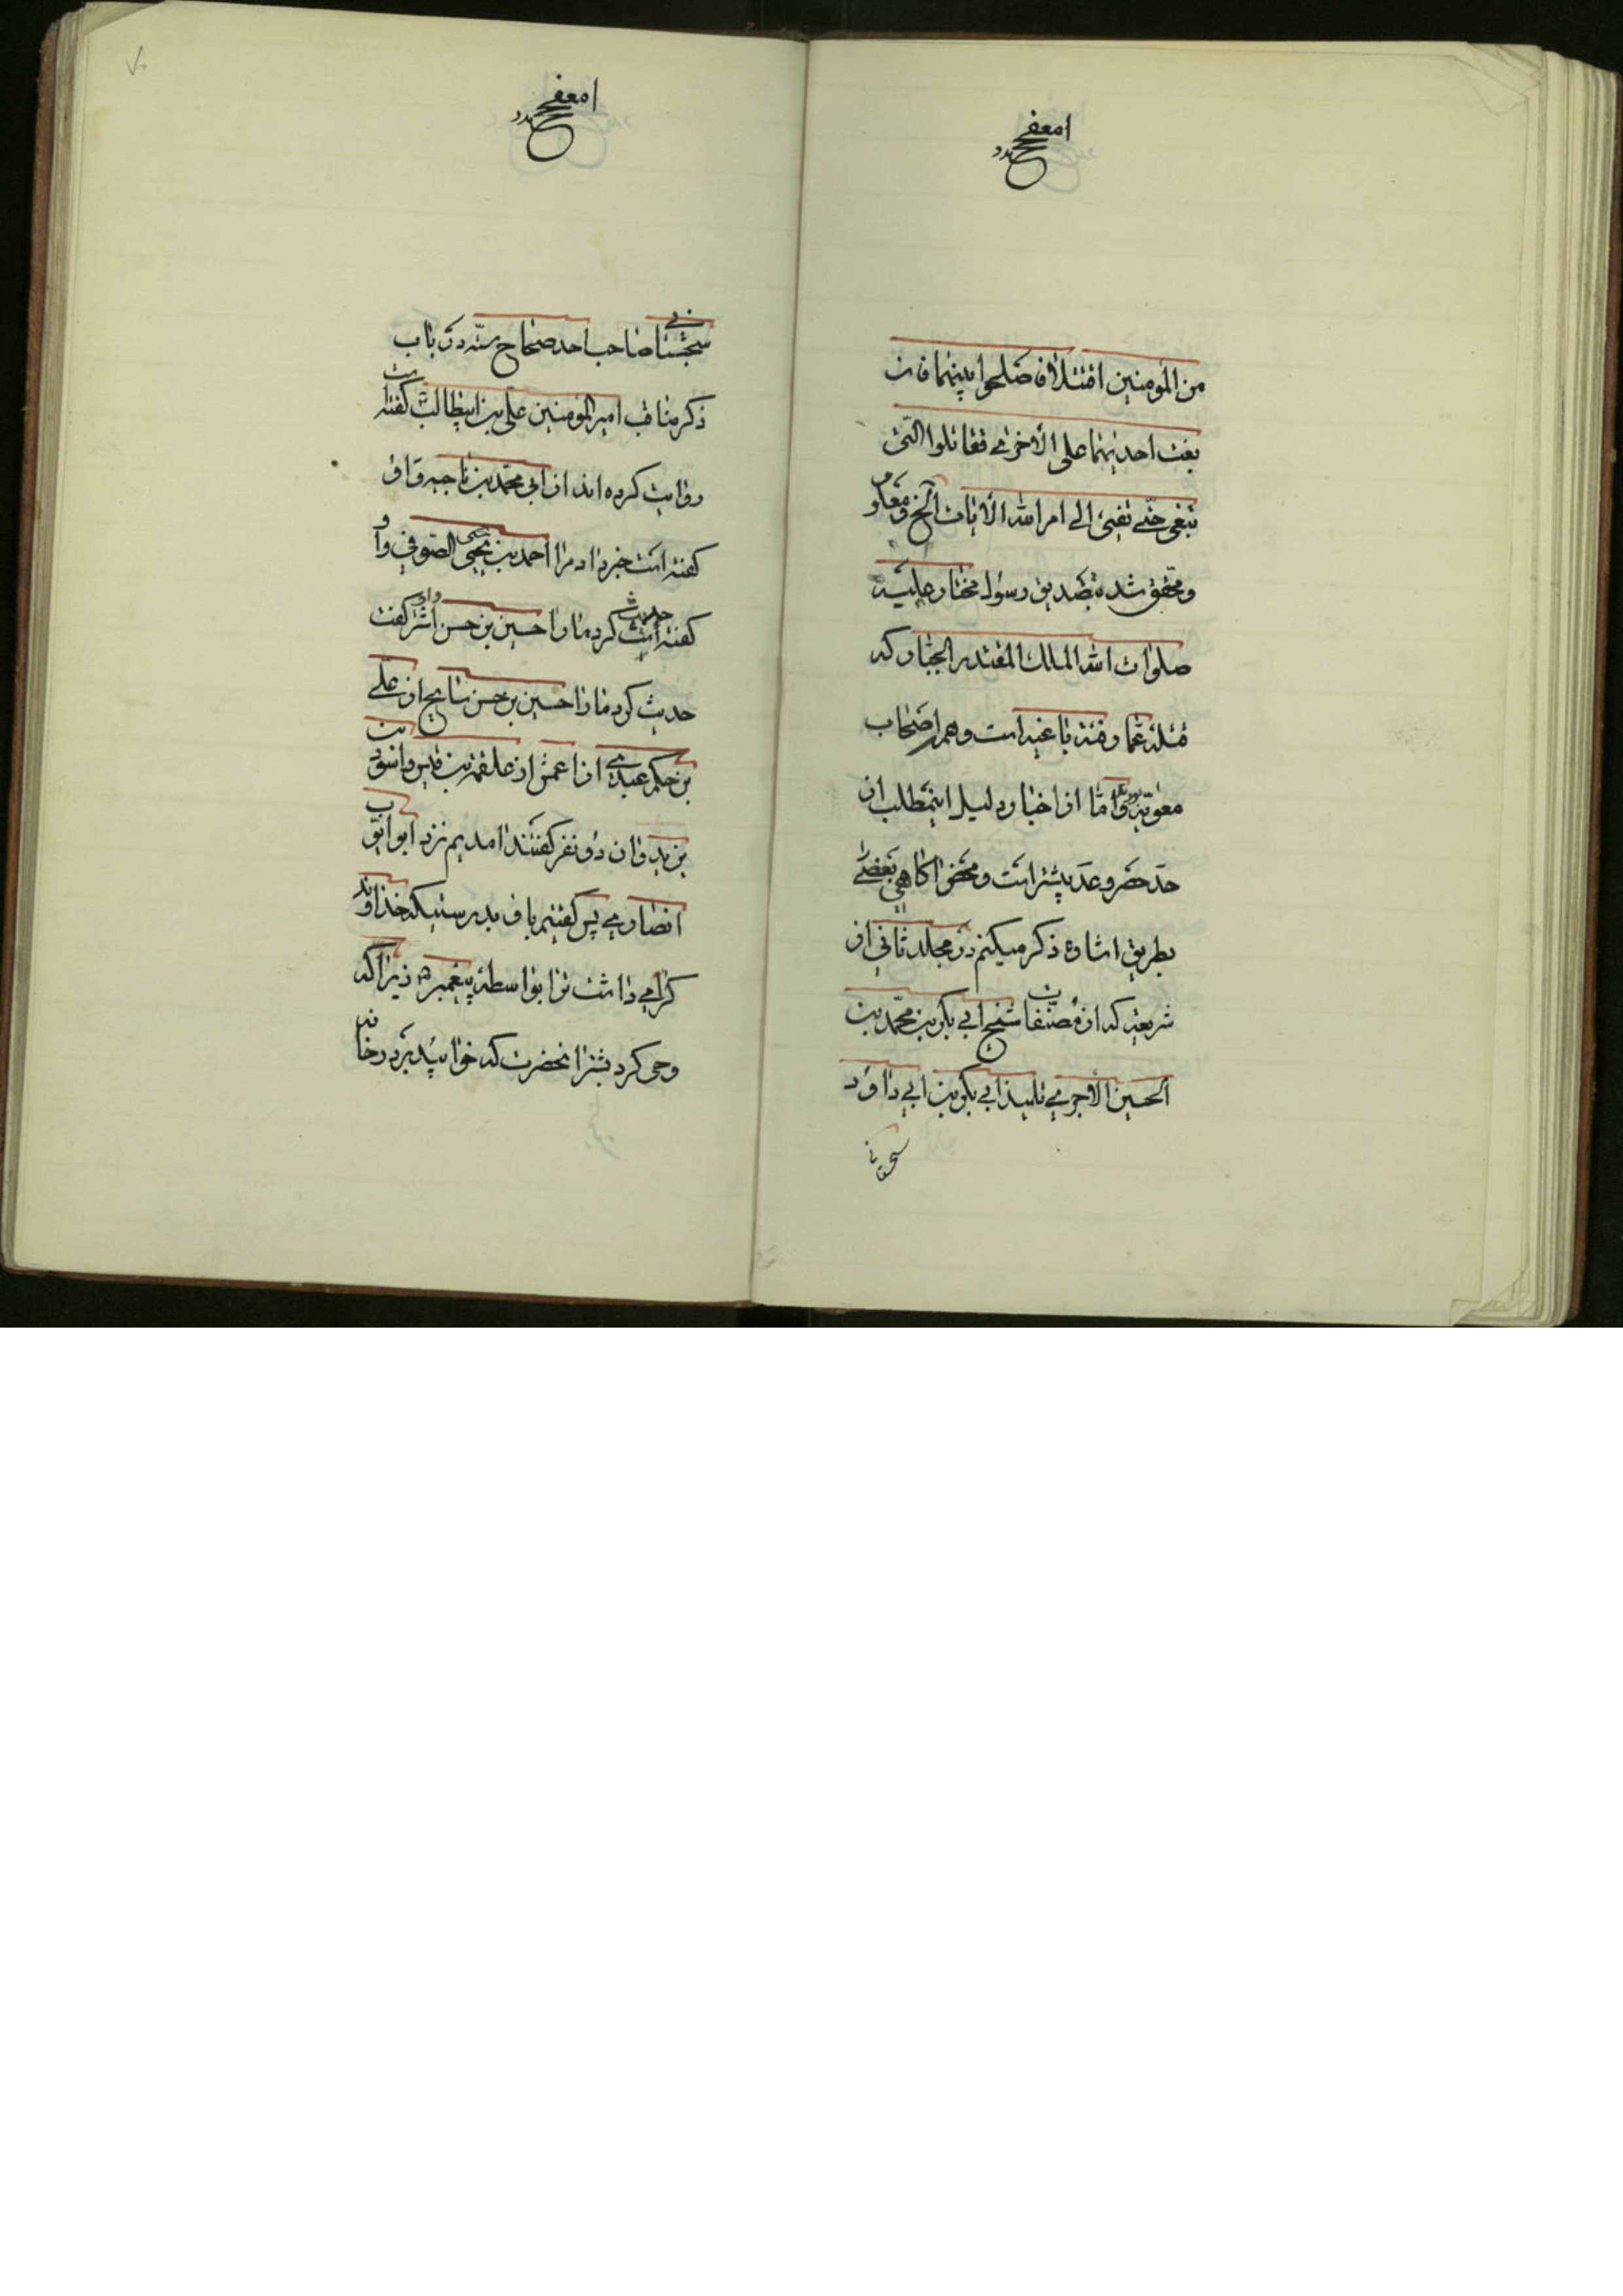 من المؤمنین اقتتلا فاصلحوا بینهما فان
بغت احدیٰهما علی الأخری فقاتلوا الّتی
تبغی حتّی تفیئ الی امر الله الأیات الخ و معلوم
و محقق شده بتصدیق رسول مختار علیه
صلوات الله الملك المقتدر الجبّار که
قتله عمّار فئه باغیه است و همه اصحاب
معویه بودند و امّا از اخبار دلیل اینمطلب از
حدّ حصر و عدّ بیشتر است و محض اکاهی بعضی
بطریق اشاره ذکر میکنم در مجلد ثانی از
شریعه که از مصنّفات شیخ ابی بکر بن محمّد بن
الحسین الأجری تلمیذ ابی بکر بن ابی داود
سجستانی صاحب احد صحاح ستّه در باب
ذکر مناقب امیر المؤمنین علی بن ابیطالب کفته است
روایت کرده اند از ابی محمّد بن ناجیه و او
کفته است خبر داد مرا احمد بن یحیی الصّوفی و او
کفته است حدیث کرد ما را حسین بن حسن اشقر کفت
حدیث کرد ما را حسین بن حسن از علی
بن حکم عبدی از اعمش از علقمه بن قیس و اسود بن
یزید و ان دو نفر کفتند امدیم نزد ابو ایّوب
انصاری پس کفتیم باو بدرستیکه خداوند
کرامی داشت ترا بواسطه پیغمبر زیرا که
وحی کرد بشتر انحضرت که خوابید بر در خانه